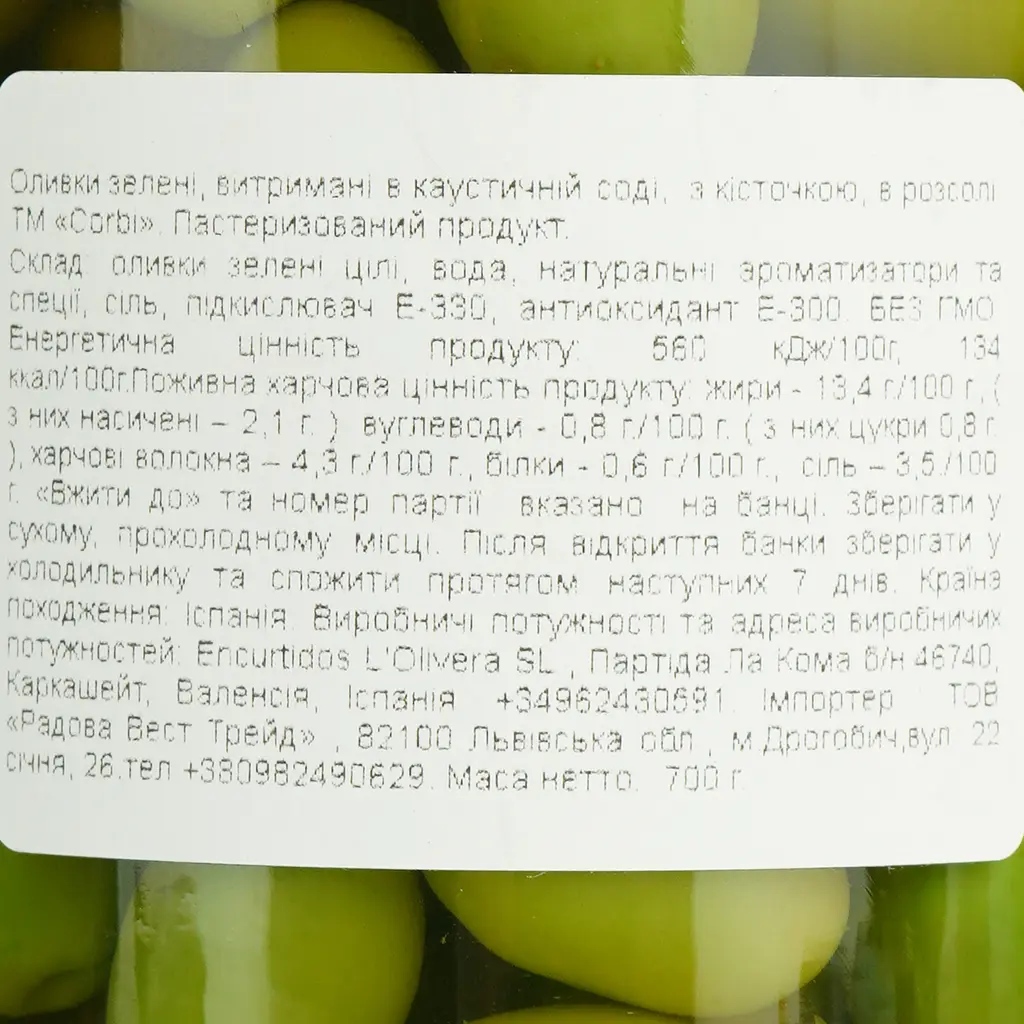 Оливки зелені, витримані в каустичній соді, з кісточкою, в розсолі
ТМ «Corbi». Пастеризований продукт.
Склад: оливки зелені цілі, вода, натуральні ароматизатори та
спеції, сіль, підкислювач Е-330, антиоксидант Е-300. БЕЗ ГМО
Енергетична цінність продукту: 560 кДж/100г, 134
ккал/100г.Поживна харчова цінність продукту: жири - 13,4 г./100 г., (
з них насичені – 2,1 г. ) вуглеводи - 0,8 г./100 г. ( з них цукри 0,8 г.
), харчові волокна – 4,3 г./100 г., білки - 0,6 г./100 г., сіль – 3,5./100
г. «Вжити до» та номер партії вказано на банці. Зберігати у
сухому, прохолодному місці. Після відкриття банки зберігати у
холодильнику та спожити протягом наступних 7 днів. Країна
походження: Іспанія. Виробничі потужності та адреса виробничих
потужностей: Encurtidos L'Olivera SL , Партіда Ла Кома б/н 46740,
Каркашейт, Валенсія, Іспанія +34962430691. Імпортер ТОВ
«Радова Вест Трейд» , 82100 Львівська обл., м.Дрогобич,вул. 22
січня, 26.тел +380982490629. Маса нетто: 700 г.